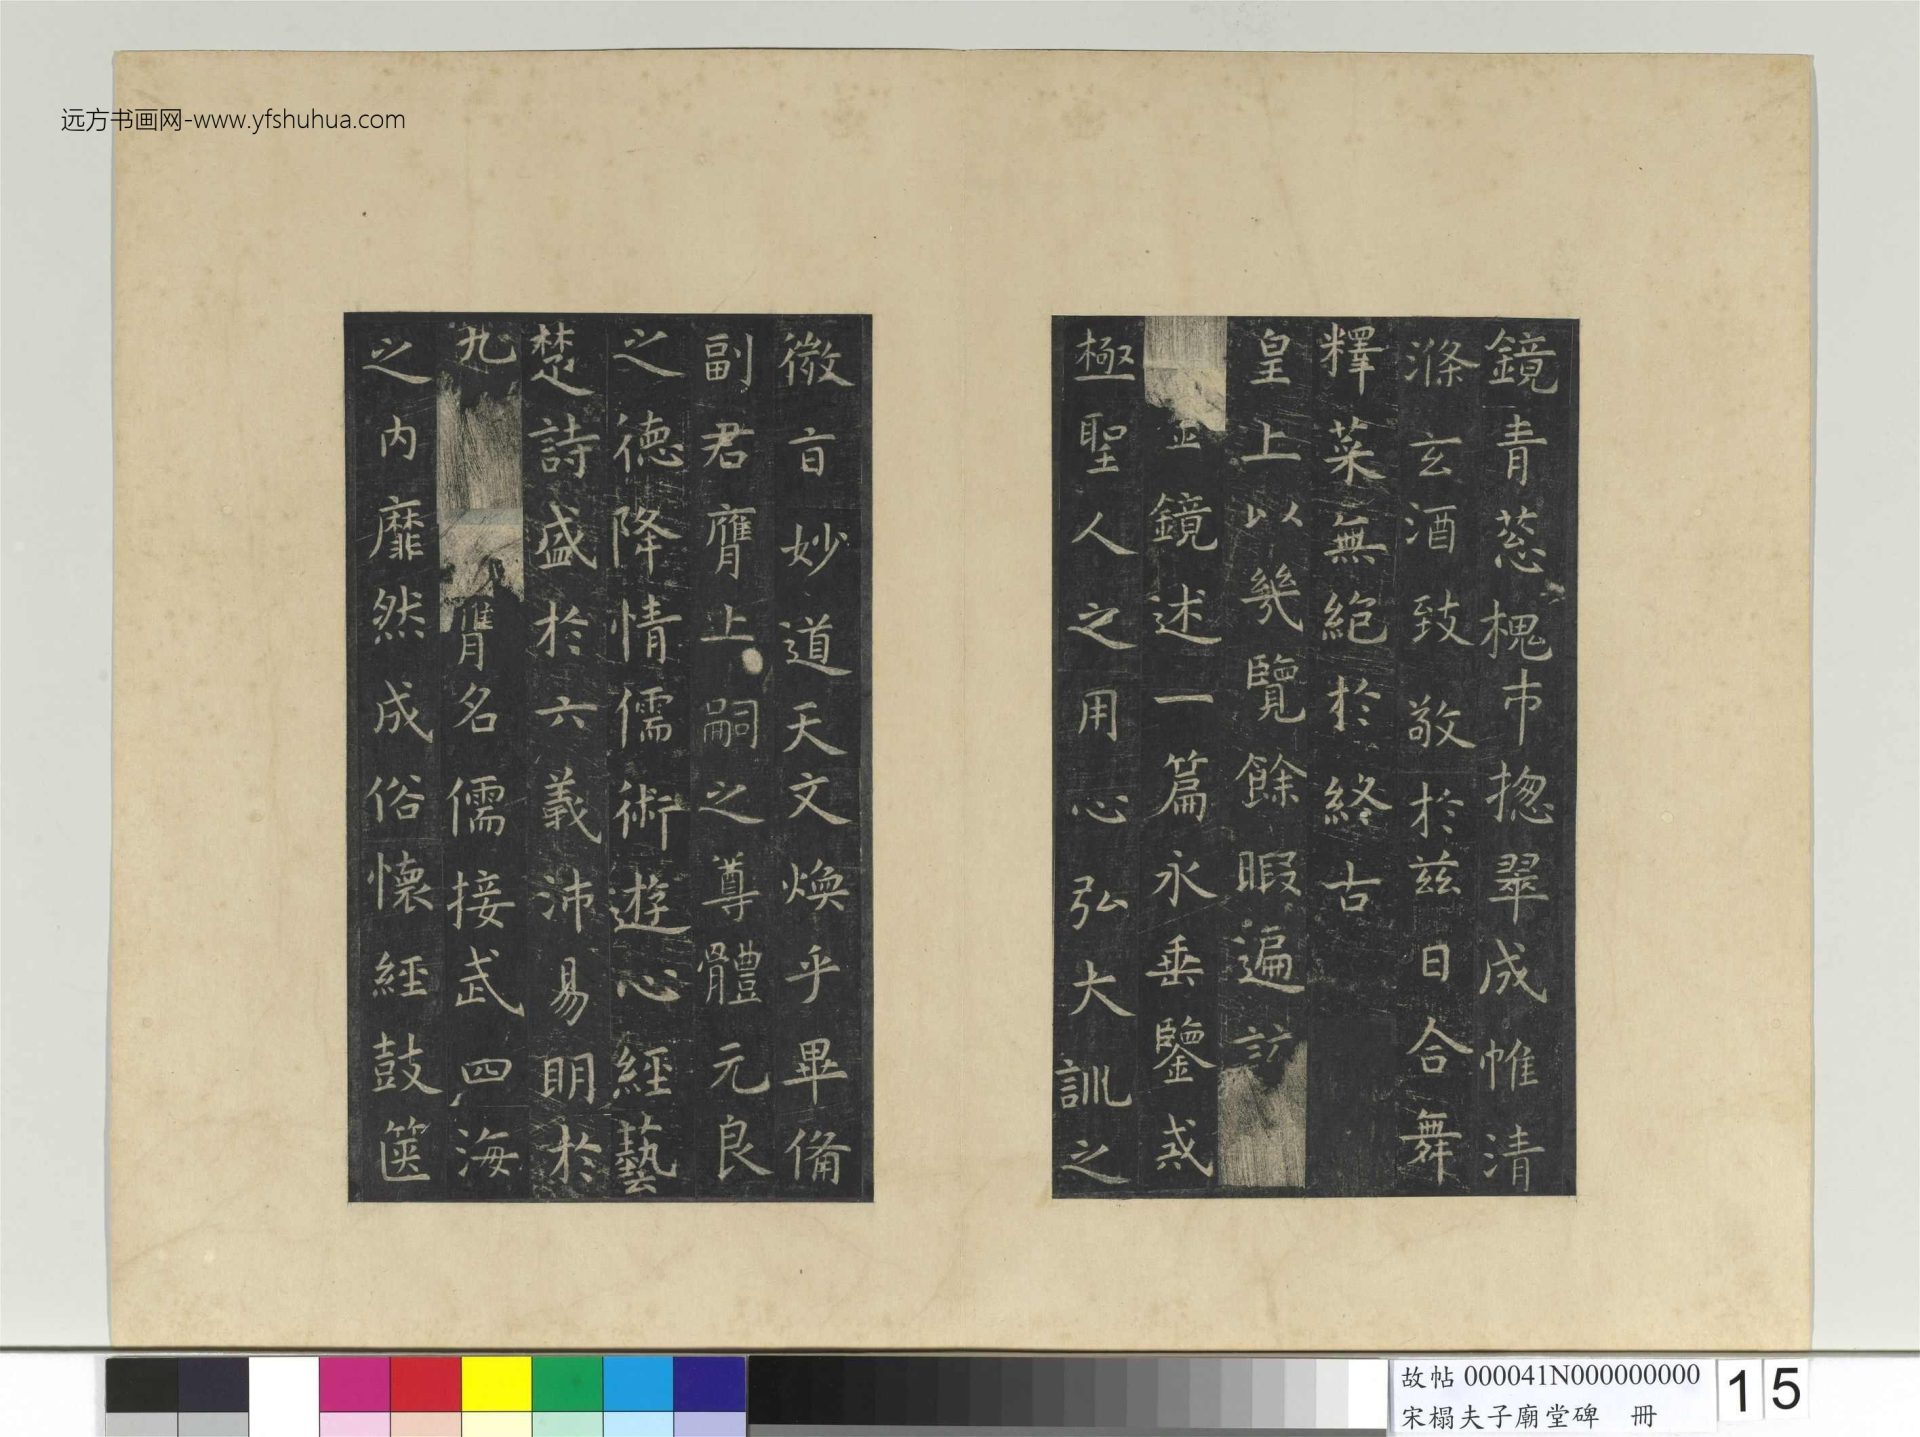 远方书画网-www.yfshuhua.com
鏡青蔥槐市揔翠成帷清
滌玄酒致敬於兹日合舞
釋菜無絶於終古
皇上以幾覽餘暇遍訪
金鏡述一篇永垂鑒戒
極聖人之用心弘大訓之
微旨妙道天文煥乎畢備
副君膺上嗣之尊體元良
之德降情儒術遊心經藝
楚詩盛於六義沛易明於
九
膺名儒接武四海
之内靡然成俗懷經鼓篋
故帖 000041N000000000
宋榻夫子廟堂碑 冊
15